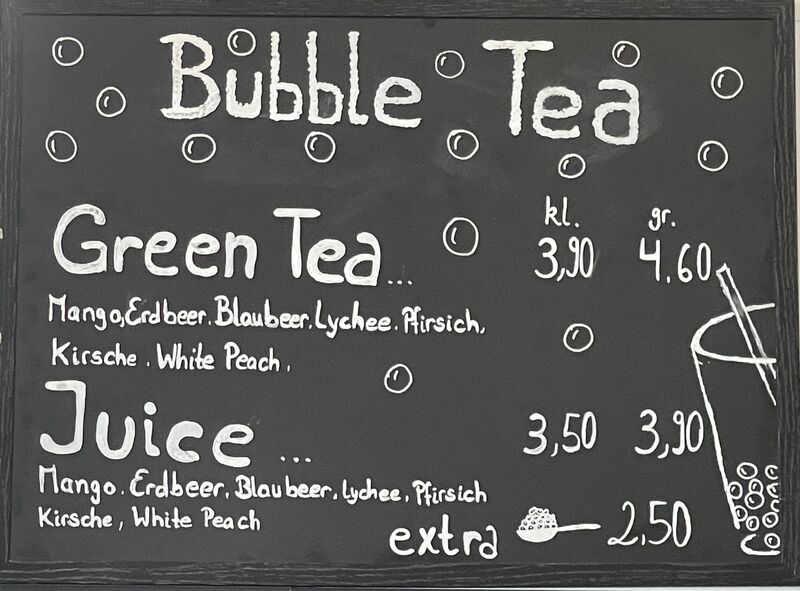 Bubble Tea
kl. gr.
Green Tea... 3,90 4.60
Mango, Erdbeer, Blaubeer, Lychee. Pfirsich,
Kirsche. White Peach,
Juice... 3,50 3,90
Mango. Erdbeer, Blaubeer, Lychee, Pfirsich
Kirsche, White Peach
extra 2,50